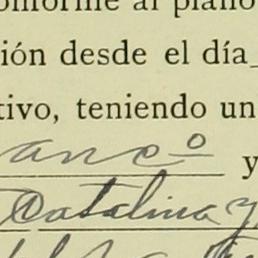 conforme al plano
ión desde el día
tivo, teniendo un
anco y
Catalina y